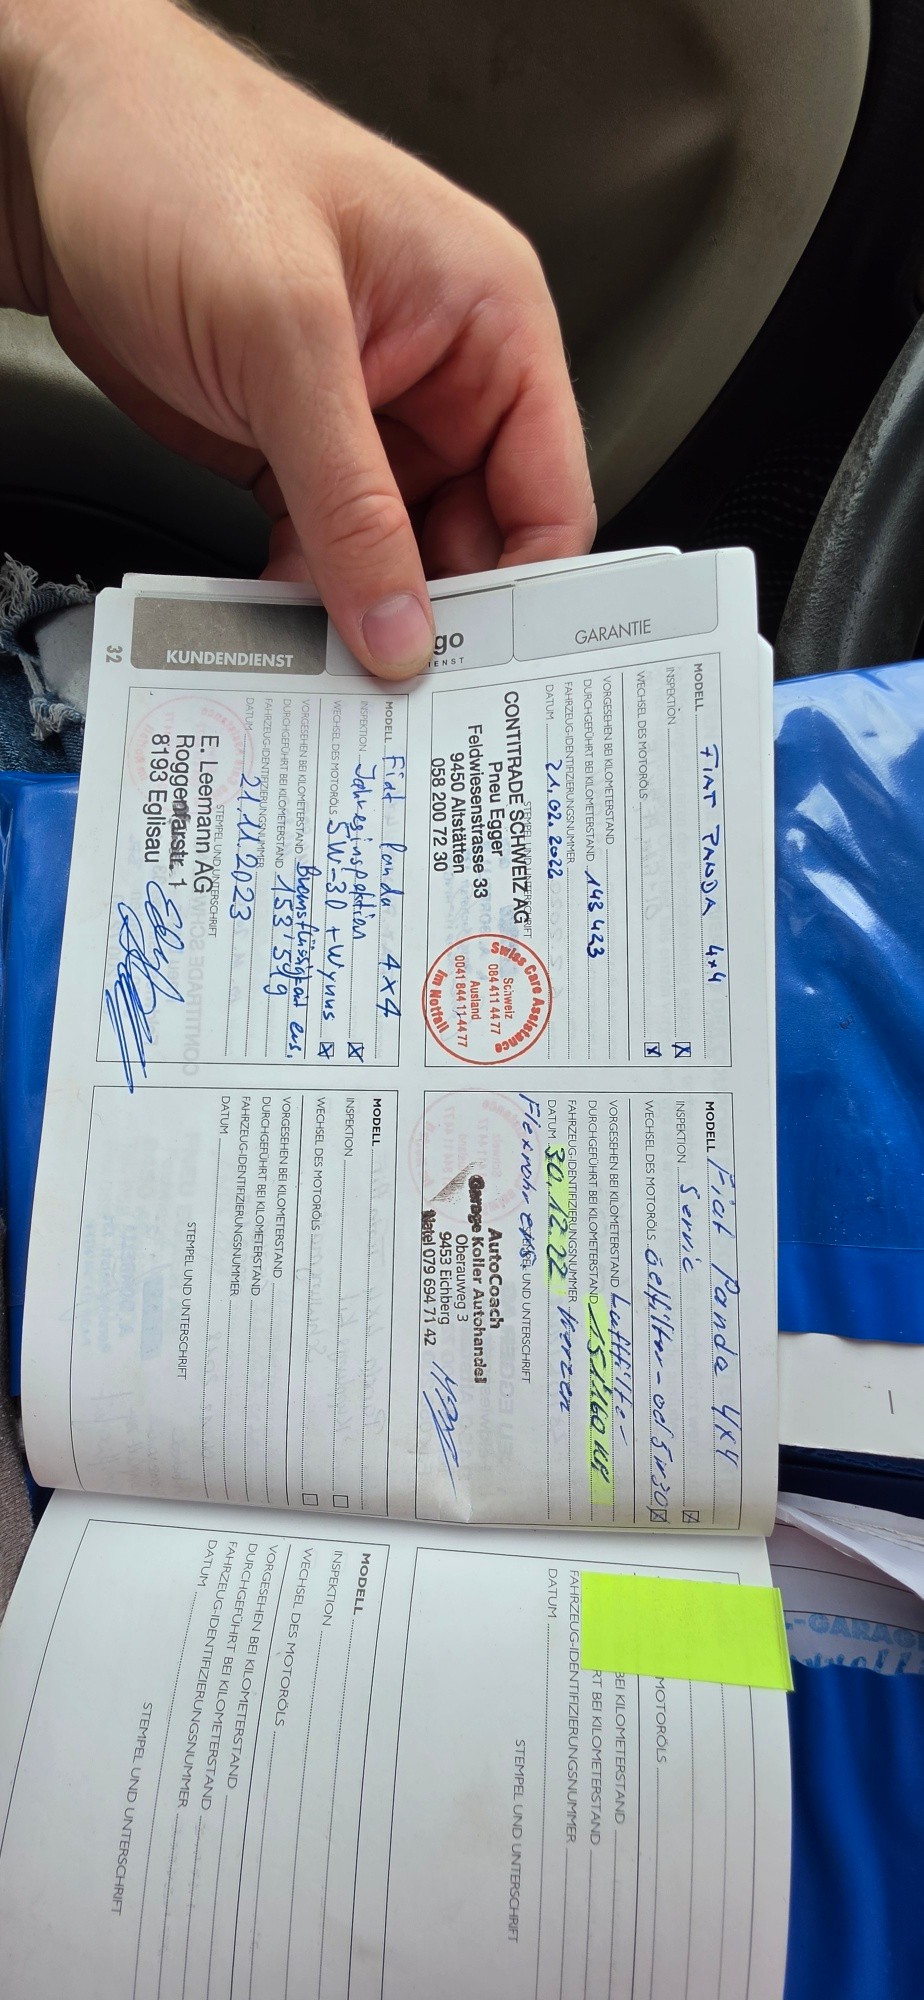 GARANTIE
go
IENST
KUNDENDIENST
32
MODELL FIAT PANDA 4x4
INSPEKTION
WECHSEL DES MOTORÖLS
VORGESEHEN BEI KILOMETERSTAND
DURCHGEFÜHRT BEI KILOMETERSTAND 143 433
FAHRZEUG-IDENTIFIZIERUNGSNUMMER
DATUM 21.02.2022
STEMPEL UND UNTERSCHRIFT
CONTITRADE SCHWEIZ AG
Pneu Egger
Feldwiesenstrasse 33
9450 Altstätten
058 200 72 30
Swiss Care Assistance
Schweiz
084 411 44 77
Ausland
0041 844 11 44 77
Im Notfall
MODELL Fiat Panda 4x4
INSPEKTION Servic
WECHSEL DES MOTORÖLS oelfilter - oel 5w30
VORGESEHEN BEI KILOMETERSTAND Luftfilter
DURCHGEFÜHRT BEI KILOMETERSTAND 151'160 KM
FAHRZEUG-IDENTIFIZIERUNGSNUMMER
DATUM 30.12.22 Kerzen
Flexrohr ers
STEMPEL UND UNTERSCHRIFT
AutoCoach
Garage Koller Autohandel
Oberauweg 3
9453 Eichberg
Natel 079 694 71 42
MODELL Fiat Panda 4x4
INSPEKTION Jahresinspektion
WECHSEL DES MOTORÖLS 5W-30 + Wynns
VORGESEHEN BEI KILOMETERSTAND Bremsflüssigkeit ers.
DURCHGEFÜHRT BEI KILOMETERSTAND 153'519
FAHRZEUG-IDENTIFIZIERUNGSNUMMER
DATUM 21.11.2023
STEMPEL UND UNTERSCHRIFT
E. Leemann AG
Roggenfarstr. 1
8193 Eglisau
MODELL
INSPEKTION
WECHSEL DES MOTORÖLS
VORGESEHEN BEI KILOMETERSTAND
DURCHGEFÜHRT BEI KILOMETERSTAND
FAHRZEUG-IDENTIFIZIERUNGSNUMMER
DATUM
STEMPEL UND UNTERSCHRIFT
MOTORÖLS
BEI KILOMETERSTAND
RT BEI KILOMETERSTAND
FAHRZEUG-IDENTIFIZIERUNGSNUMMER
DATUM
STEMPEL UND UNTERSCHRIFT
MODELL
INSPEKTION
WECHSEL DES MOTORÖLS
VORGESEHEN BEI KILOMETERSTAND
DURCHGEFÜHRT BEI KILOMETERSTAND
FAHRZEUG-IDENTIFIZIERUNGSNUMMER
DATUM
STEMPEL UND UNTERSCHRIFT